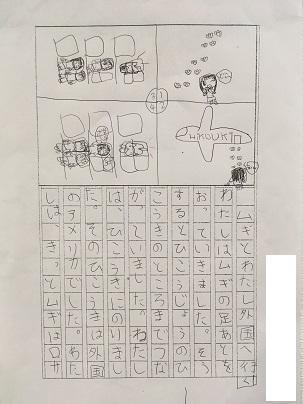 HIKOUKI
ムギとわたし外国へ行く
わたしはムギの足あとを
おっていきました。そう
するとひこうじょうのひ
こうきのところまでつな
がっていました。わたし
は、ひこうきにのりまし
た。そのひこうきは外国
のアメリカでした。わた
しは、きっとムギはロサ